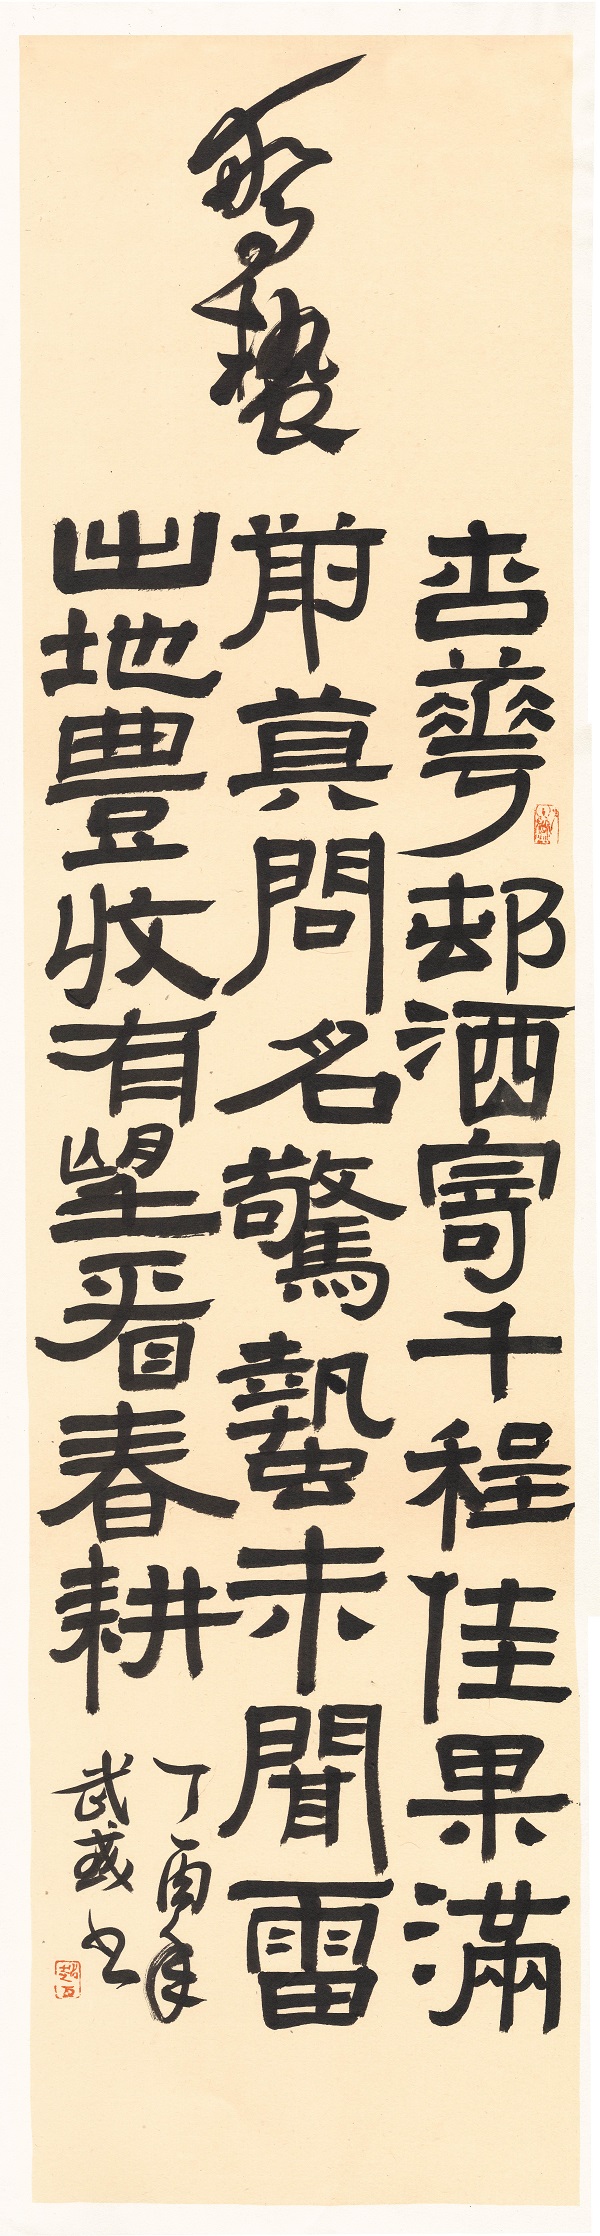 驚蟄
杏華邨酒寄千程佳果滿
前莫問名驚蟄未聞雷
出地豐收有望看春耕
丁酉年
武書